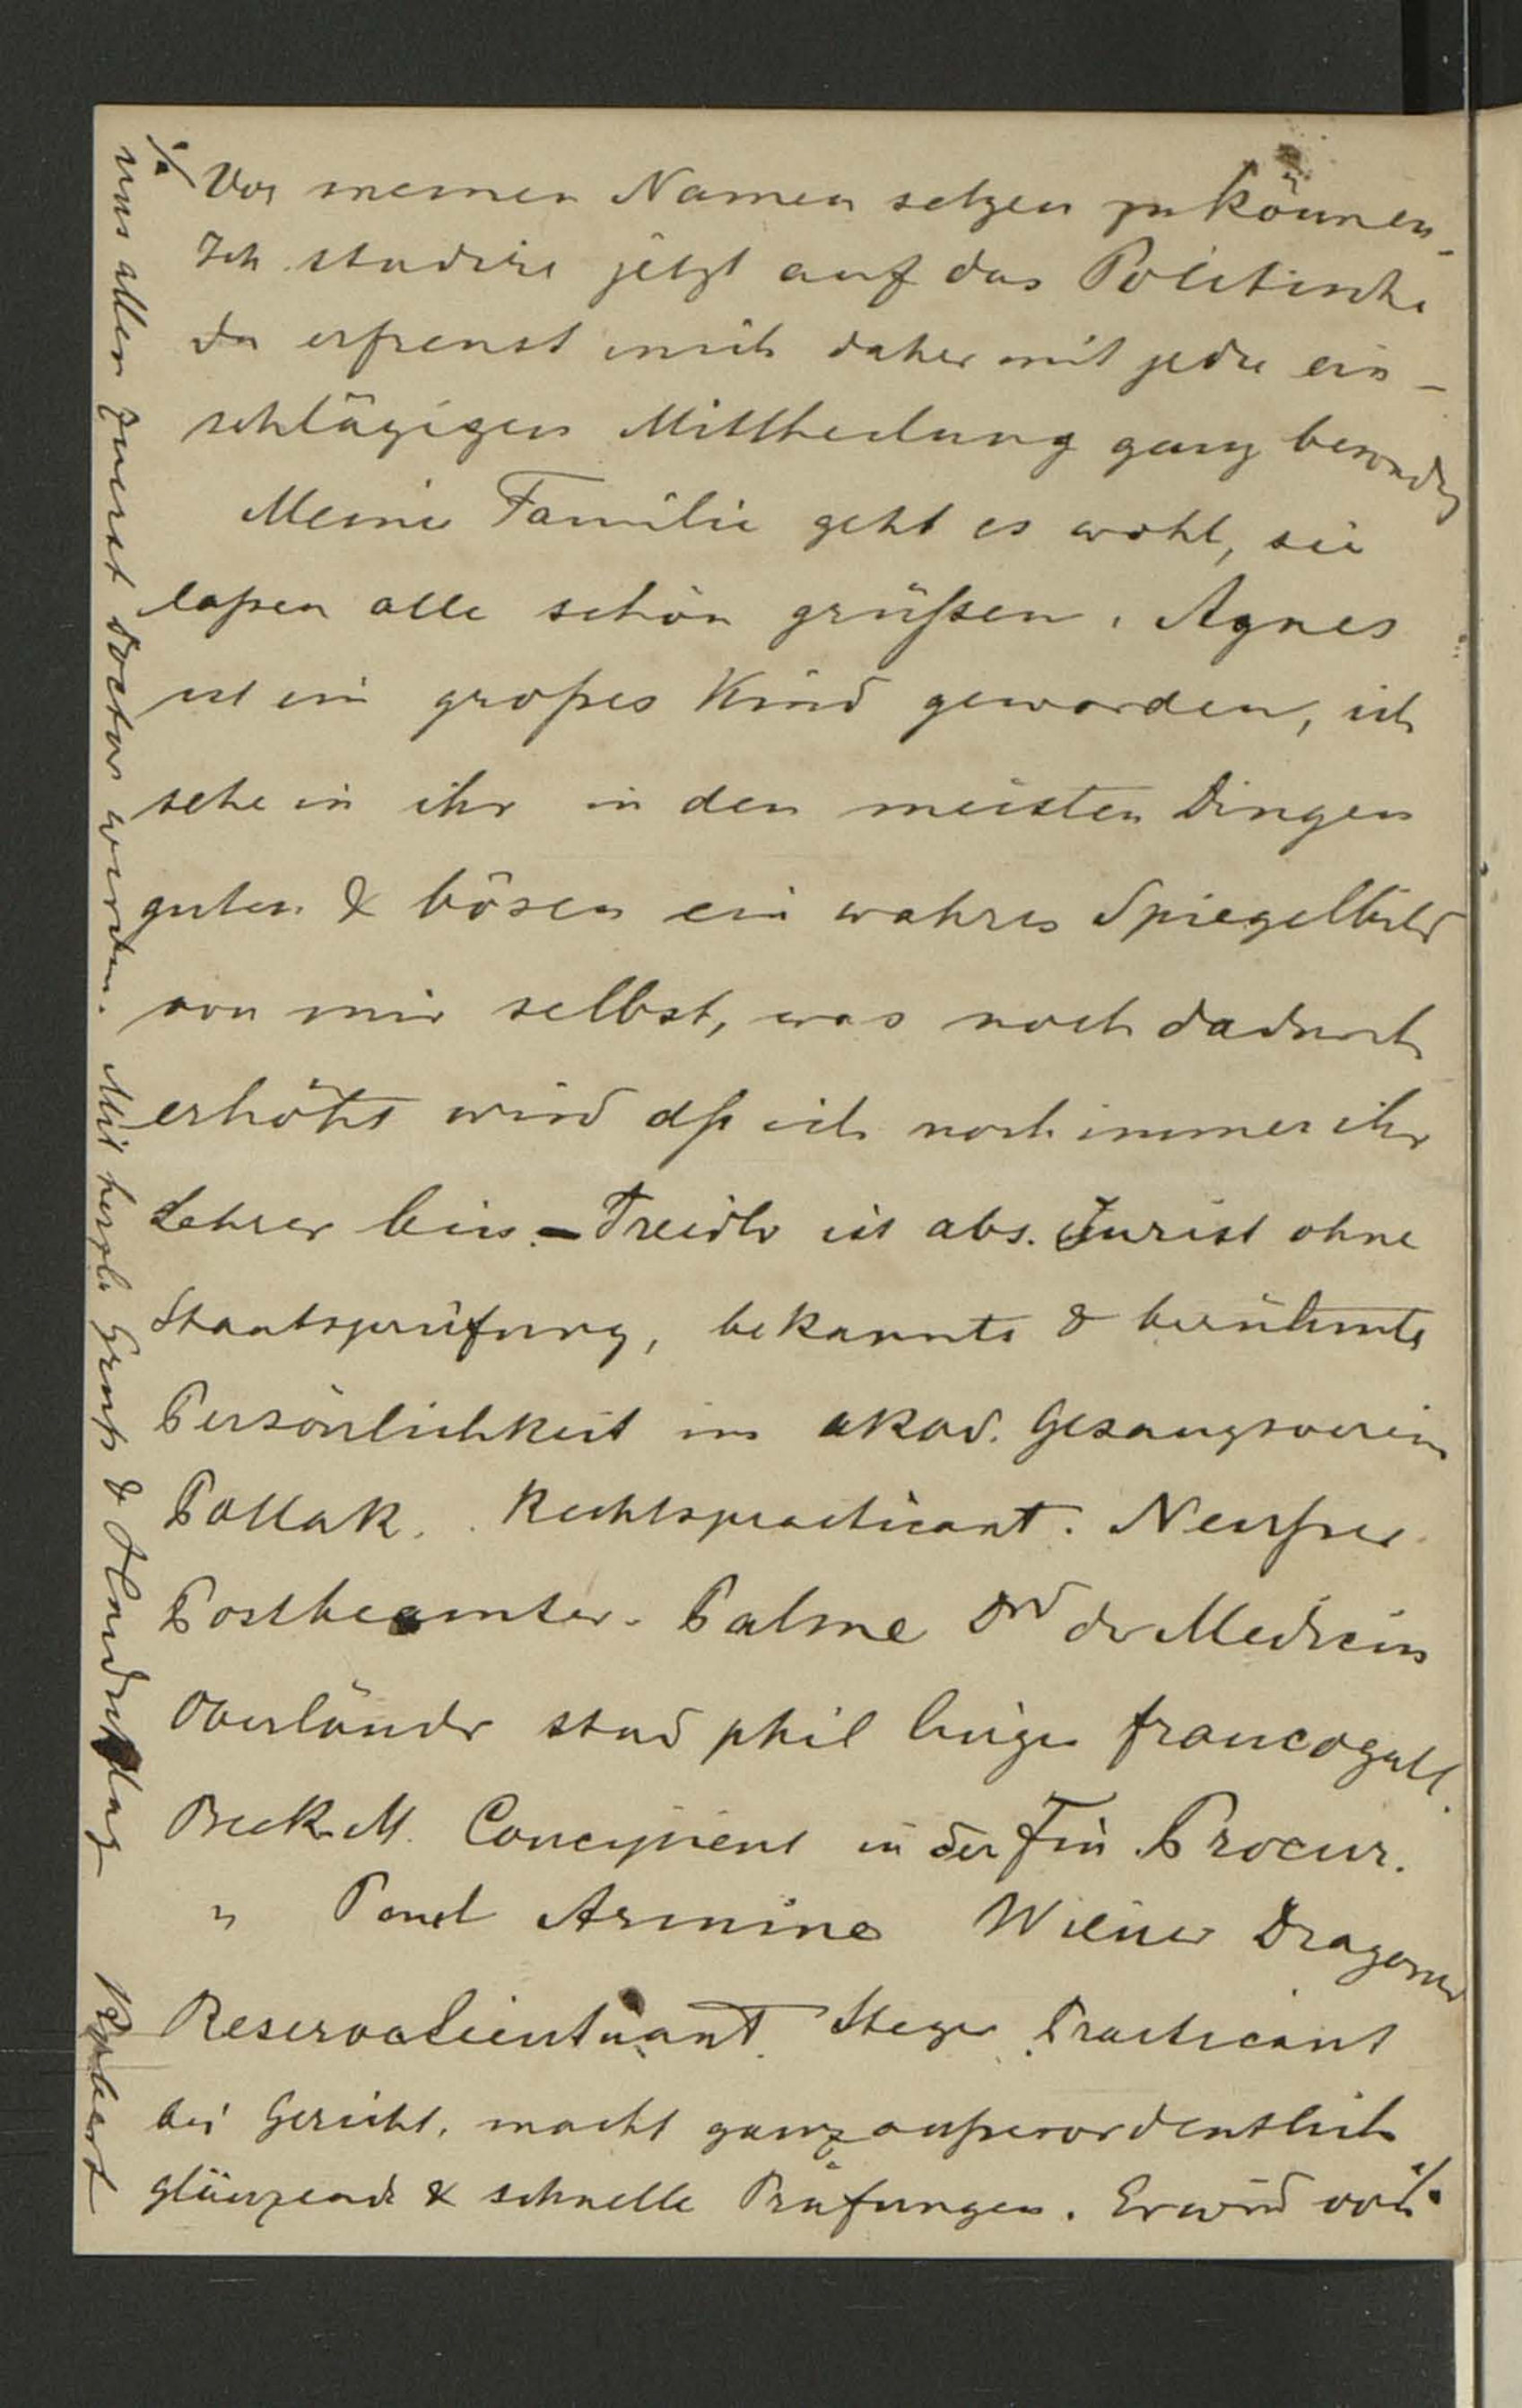 ./. Vor meinen Namen setzen zu können.
Ich studire jetzt auf das Politische
du erfreust mich daher mit jeder ein-
schlägigen Mittheilung ganz besonders
Meine Familie geht es wohl, sie
laßen alle schön grüßen. Agnes
ist ein großes Kind geworden, ich
sehe in ihr in den meisten Dingen
guten & bösen ein wahres Spiegelbild
von mir selbst, was noch dadurch
erhöht wird dß ich noch immer ihr
Lehrer bin. – Treidlr ist abs. Jurist ohne
Staatsprüfung, bekannte & berühmte
Persönlichkeit im akad. Gesangsverein
Pollak. Rechtspracticant.
Postbeamter. Palme der Medicin
Oberländer stud phil francogall.
Beck M. Concipient in der Fin Procur.
" Paul Armine Wiener Dragoner
Reservelieutnant. Steger Practicant
bei Gericht, macht ganz außerordentlich
glänzende & schnelle Prüfungen. Er wird von ./.
uns allen zuerst Doctor werden. Mit herzl. Gruß & Handschlag
Robert